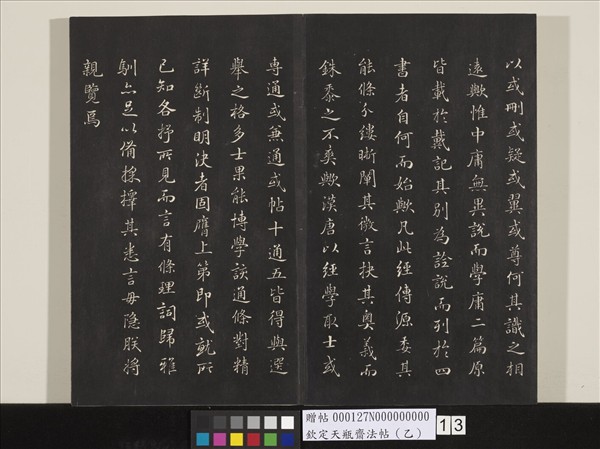 以或刪或疑或翼或尊何其識之相
遠歟惟中庸無異說而學庸二篇原
皆載於戴記其別為詮說而列於四
書者自何而始歟凡此經傳源委其
能條分縷晰闡其微言抉其奧義而
銖黍之不爽歟漢唐以經學取士或
専通或兼通或帖十通五皆得與選
舉之格多士果能博學詼通條對精
詳斷制明決者固膺上第即或就所
已知各抒所見而言有條理詞歸雅
馴亦足以備採擇其悉言毋隱朕將
親覽焉
贈帖 000127N000000000
欽定天瓶齋法帖（乙）
13